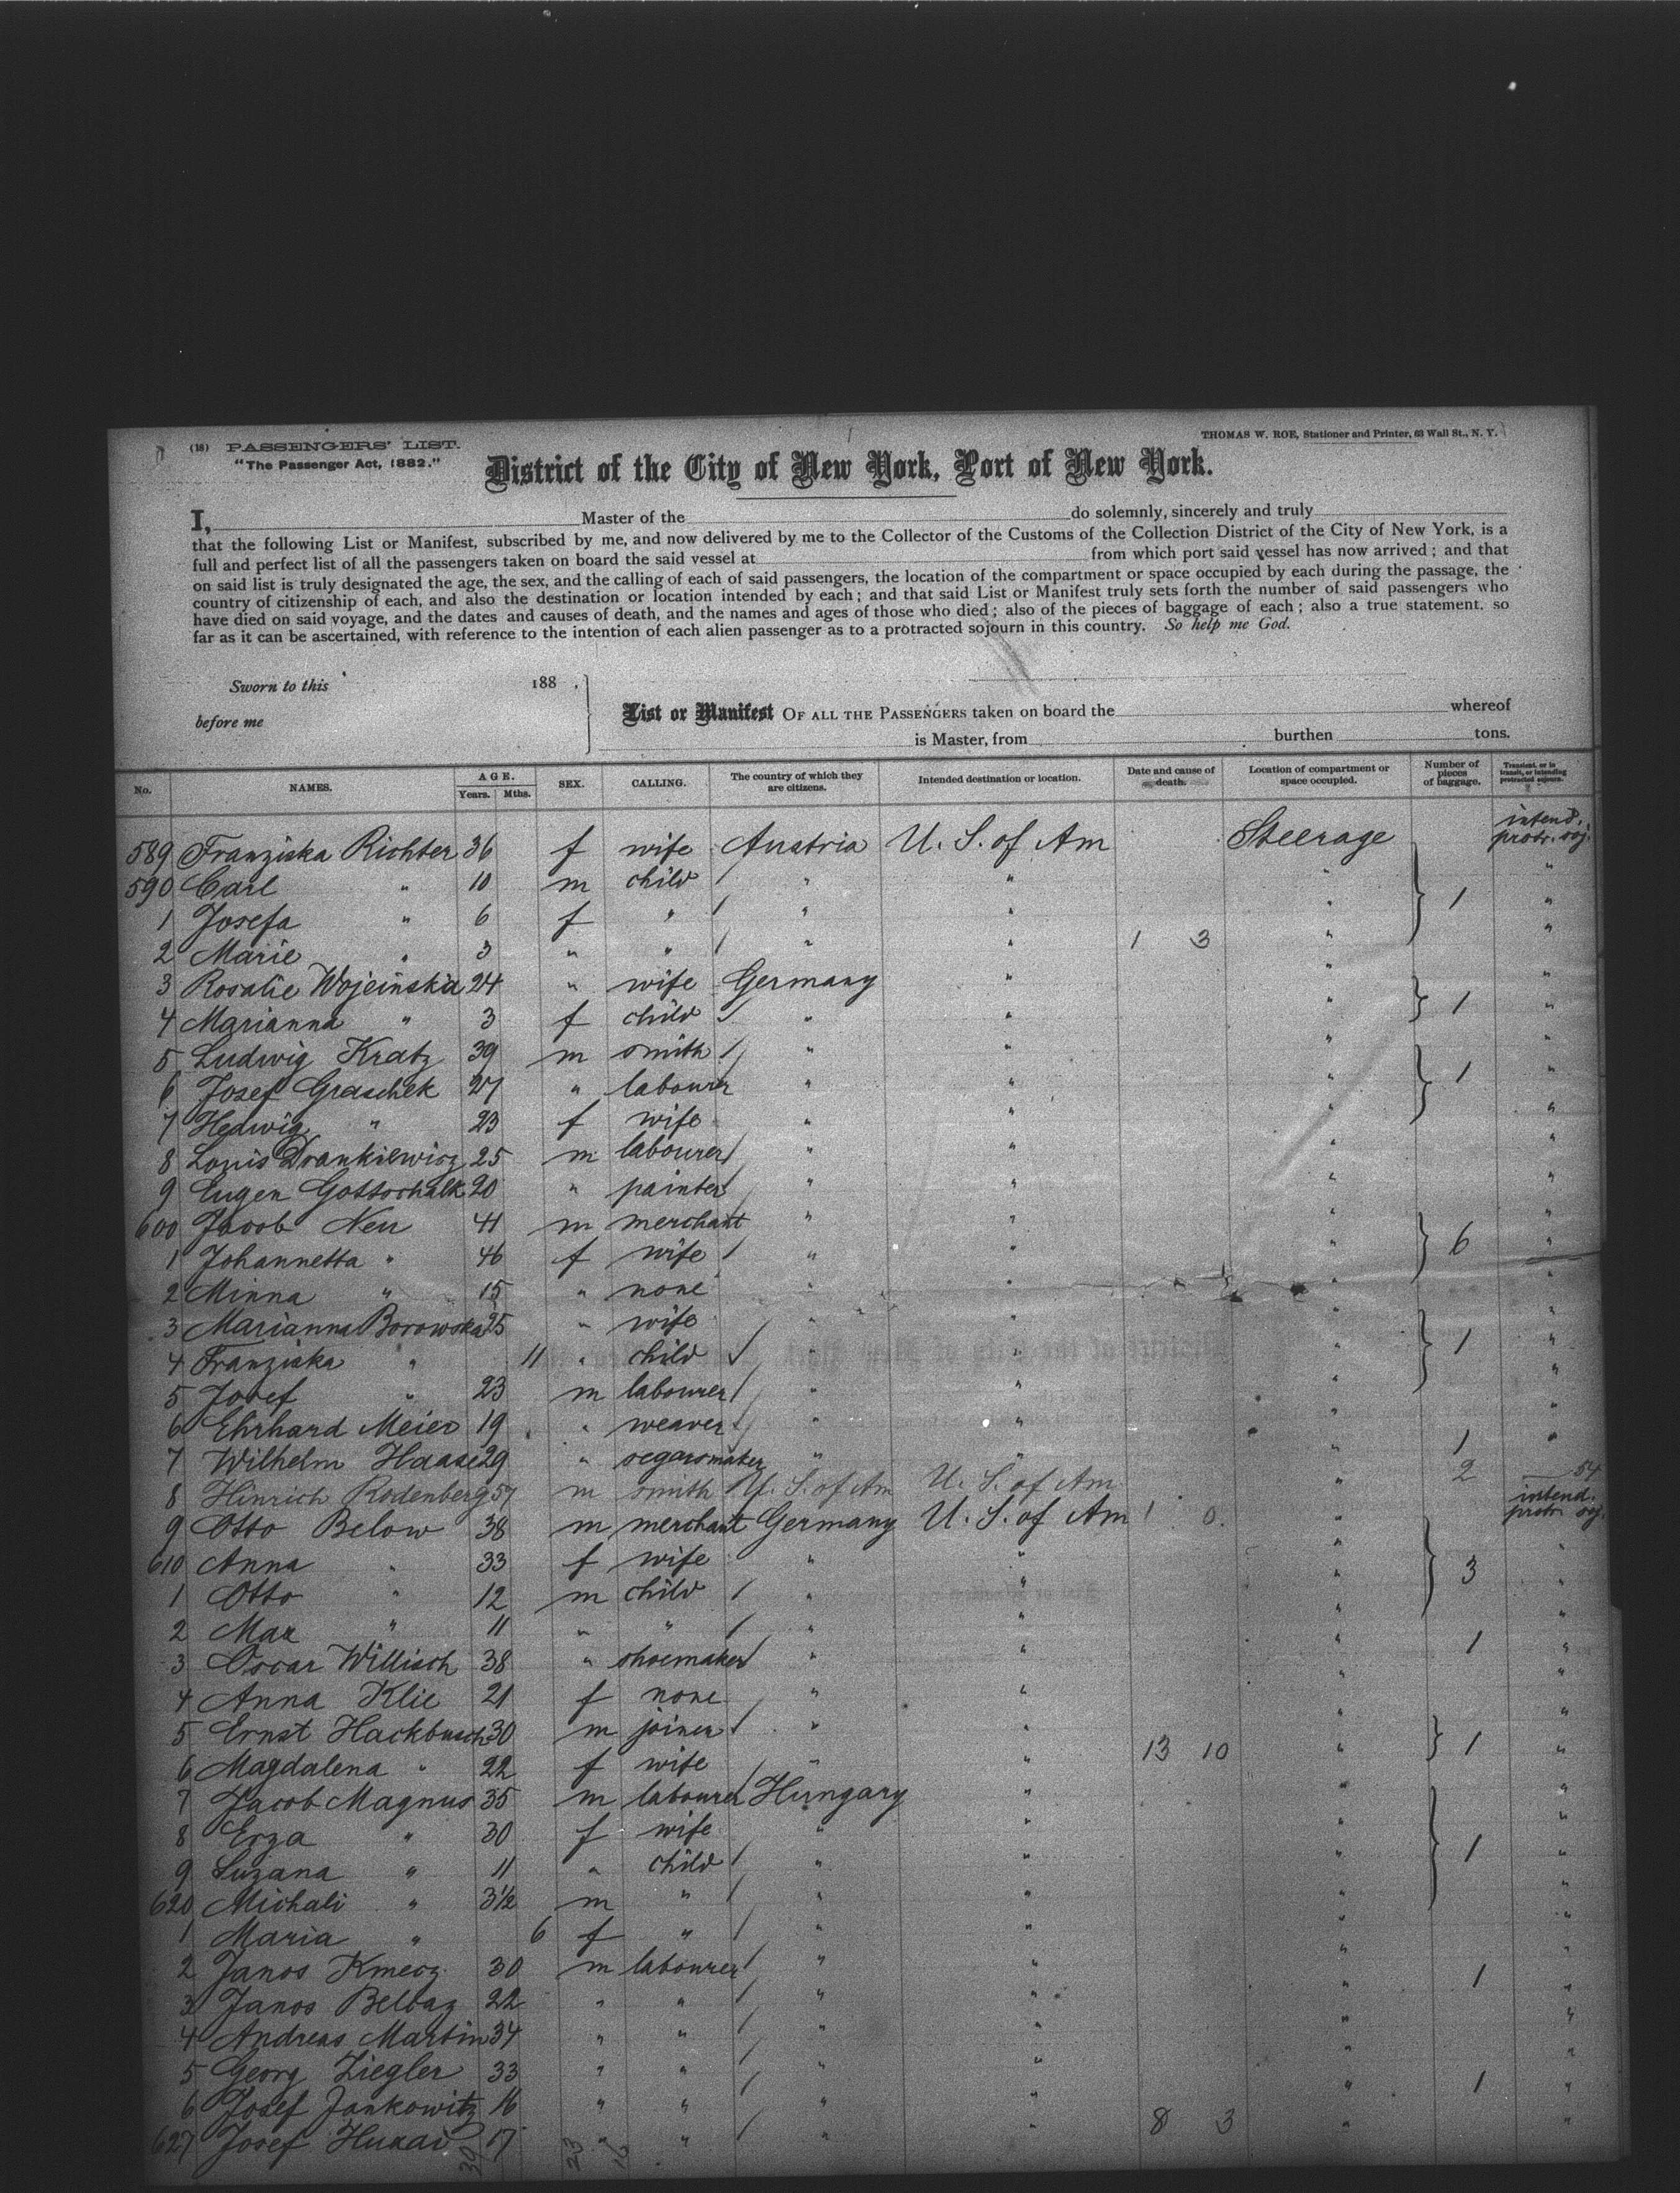 (18) PASSENGERS' LIST.
THOMAS W. ROE, Stationer and Printer, 63 Wall St., N. Y.
"The Passenger Act, 1882."
District of the City of New York, Port of New York.
I, Master of the do solemnly, sincerely and truly
that the following List or Manifest, subscribed by me, and now delivered by me to the Collector of the Customs of the Collection District of the City of New York, is a
full and perfect list of all the passengers taken on board the said vessel at from which port said vessel has now arrived; and that
on said list is truly designated the age, the sex, and the calling of each of said passengers, the location of the compartment or space occupied by each during the passage, the
country of citizenship of each, and also the destination or location intended by each; and that said List or Manifest truly sets forth the number of said passengers who
have died on said voyage, and the dates and causes of death, and the names and ages of those who died; also of the pieces of baggage of each; also a true statement, so
far as it can be ascertained, with reference to the intention of each alien passenger as to a protracted sojourn in this country. So help me God.
Sworn to this 188 .
before me
List or Manifest OF ALL THE PASSENGERS taken on board the whereof
is Master, from burthen tons.
No. NAMES. AGE. Years. Mths. SEX. CALLING. The country of which they are citizens. Intended destination or location. Date and cause of death. Location of compartment or space occupied. Number of pieces of baggage. Transient, or in transit, or intending protracted sojourn.
589 Franziska Richter 36 f wife Austria U. S. of Am Steerage intend. protr. soj.
590 Carl " 10 m child " " " "
1 Josefa " 6 f " " " " 1 "
2 Marie " 3 " " " " 1 3 " "
3 Rosalie Wojcinska 24 " wife Germany " " "
4 Marianna " 3 f child " " " 1 "
5 Ludwig Kratz 39 m smith " " " "
6 Josef Graschek 27 " labourer " " " 1 "
7 Hedwig " 23 f wife " " " "
8 Louis Drankiewicz 25 m labourer " " " "
9 Eugen Gottschalk 20 " painter " " " "
600 Jacob Neu 41 m merchant " " " "
1 Johannetta " 46 f wife " " " 6 "
2 Minna " 15 " none " " " "
3 Marianna Borowska 25 " wife " " " "
4 Franziska " 11 " child " " " 1 "
5 Josef " 23 m labourer " " " "
6 Ehrhard Meier 19 " weaver " " " "
7 Wilhelm Haase 29 " segarsmaker " " " 1 "
8 Hinrich Rodenberg 57 m smith U. S. of Am U. S. of Am " 2 54
9 Otto Below 38 m merchant Germany U. S. of Am 1 0. " intend. protr. soj.
610 Anna " 33 f wife " " " "
1 Otto " 12 m child " " " 3 "
2 Max " 11 " " " " " "
3 Oscar Willisch 38 " shoemaker " " " 1 "
4 Anna Klie 21 f none " " " "
5 Ernst Hackbusch 30 m joiner " " " "
6 Magdalena " 22 f wife " " 13 10 " 1 "
7 Jacob Magnus 35 m labourer Hungary " " "
8 Erza " 30 f wife " " " "
9 Suzana " 11 " child " " " 1 "
620 Michali " 3½ m " " " " "
1 Maria " 6 f " " " " "
2 Janos Kmecz 30 m labourer " " " 1 "
3 Janos Belbaz 22 " " " " " "
4 Andreas Martin 34 " " " " " "
5 Georg Ziegler 33 " " " " " "
6 Josef Jankowitz 16 " " " " " 1 "
627 Josef 17 " " " " 8 3 " "
39 23 16